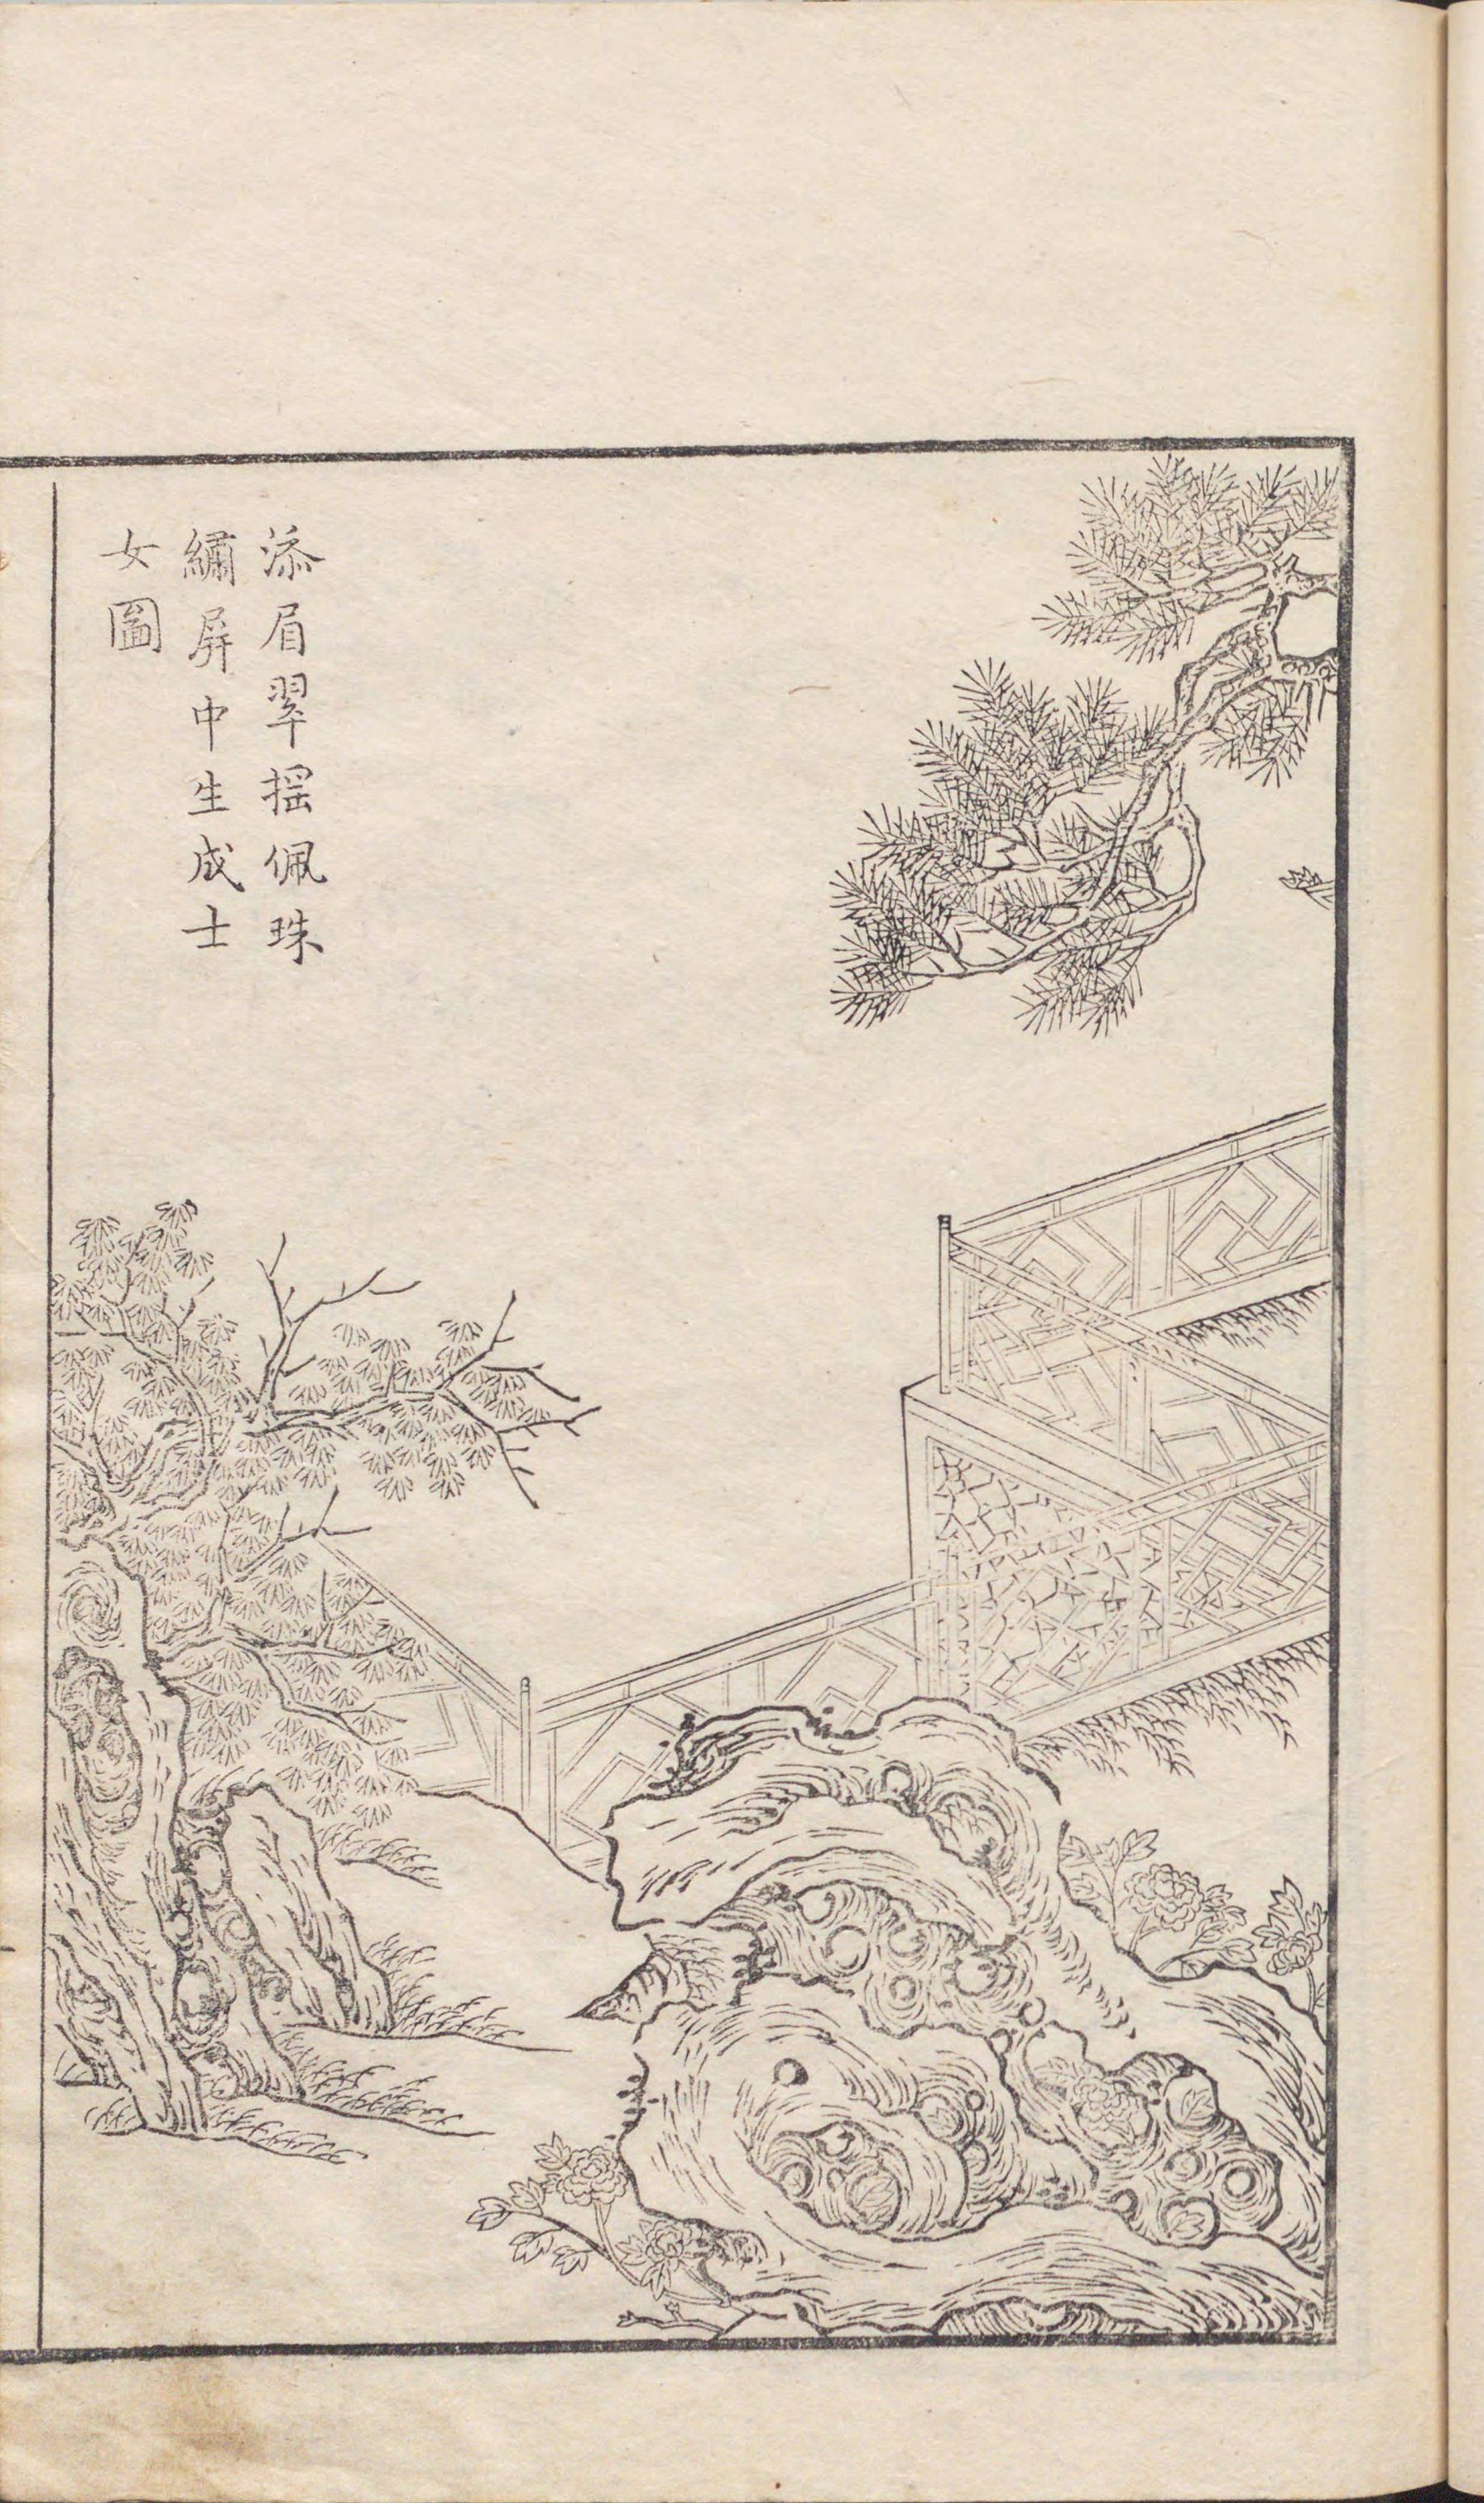 添眉翠搖佩珠
繡屏中生成士
女圖